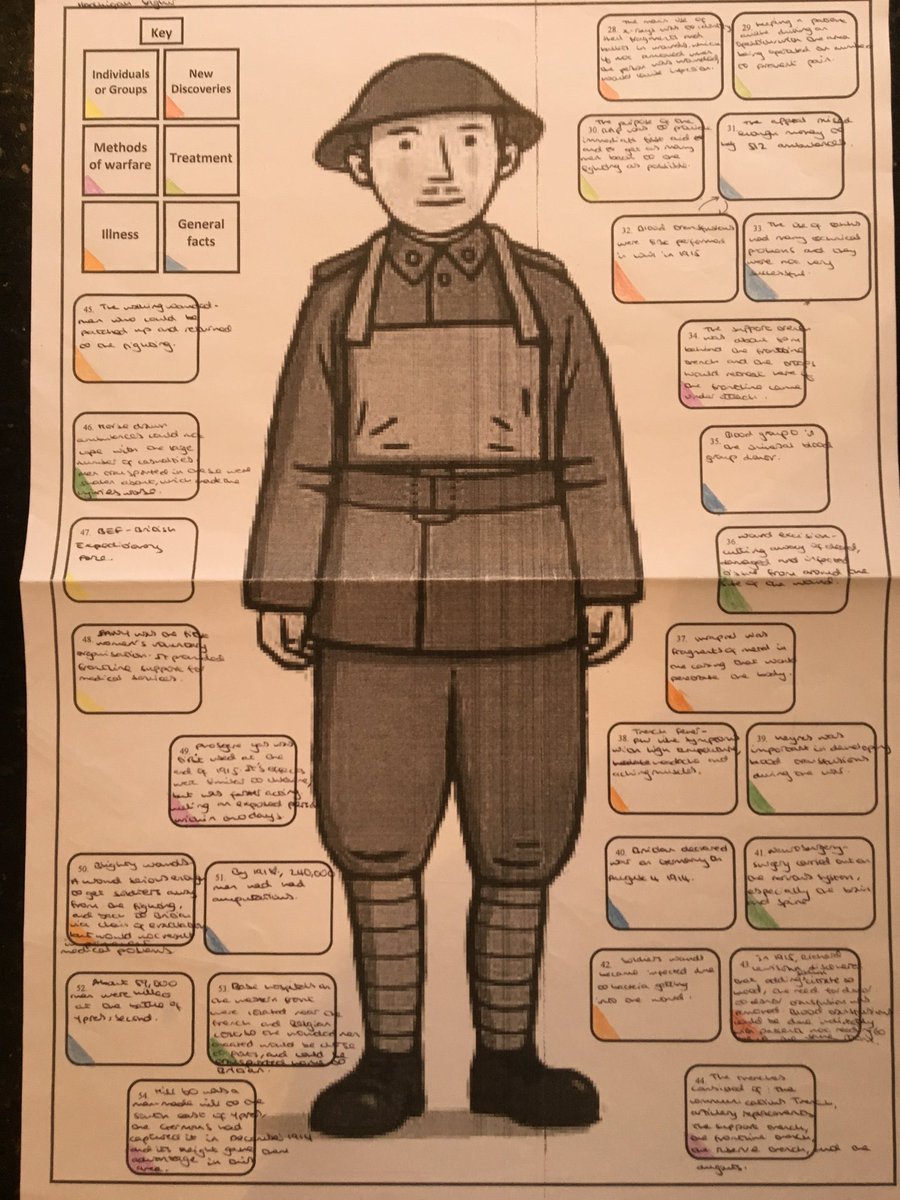 Key
Individuals or Groups
New Discoveries
Methods of warfare
Treatment
Illness
General facts
28. The main use of
x-rays was to identify
shell fragments and
bullets in wounds which
if not removed when
the person was wounded,
would cause infection.
29. Keeping a patient
awake during an
operation with the area
being operated on numbed
to prevent pain.
30. The purpose of the
RAP was to provide
immediate first aid
and to get as many
men back to the
fighting as possible.
31. The appeal raised
enough money to
buy 512 ambulances.
32. Blood transfusions
were first performed
in war in 1915
33. The use of tanks
had many technical
problems and they
were not very
successful.
34. The support trench
was about 80m
behind the frontline
trench and the troops
would retreat here if
the frontline came
under attack.
35. Blood group O is
the universal blood
group donor.
36. Wound excision-
cutting away of dead,
damaged and infected
tissue from around the
site of the wound.
37. Shrapnel was
fragments of metal in
the casing that would
penetrate the body.
38. Trench fever-
flu like symptoms
with high temperature,
headache and
aching muscles.
39. Keynes was
important in developing
blood transfusions
during the war.
40. Britain declared
war on Germany on
August 4 1914.
41. Neurosurgery-
surgery carried out on
the nervous system,
especially the brain
and spine
42. Soldiers wounds
became infected due
to bacteria getting
into the wound.
43. in 1915, Richard
Lewisohn discovered
that adding sodium citrate to
blood, the need for donor
to donor transfusion was
removed. Blood transfusions
could be done indirectly
44. The trenches
consisted of: The
communications Trench,
artillery
The support trench,
the frontline trench,
the reserve trench, and the
dugouts.
45. The walking wounded-
men who could be
patched up and returned
to the fighting.
46. Horse drawn
ambulances could not
cope with the large
number of casualties
men transported in these were
shaken about, which made the
injuries worse.
47. BEF - British
Expeditionary
Force.
48. FANY was the first
women's voluntary
organisation. It provided
frontline support for
medical services.
49. Phosgene gas was
first used at the
end of 1915. It's effects
were similar to chlorine,
but was faster acting
killing an exposed person
within two days
50. Blighty wounds
A wound serious enough
to get soldiers away
from the fighting,
and back to Britain
via chain of evacuation
but would not result
in permanent
medical problems
51. By 1918, 240,000
men had had
amputations.
52. About 59,000
men were killed
at the battle of
Ypres, second.
53. Base hospitals on
the western front
were located near the
French and Belgian
coast, so the wounded men
treated would be close
to ports, and could be
transported home to
Britain.
54. Hill 60 was a
man made hill to the
south east of Ypres.
The Germans had
captured it in December 1914
and its height gave them
advantage in this
area.